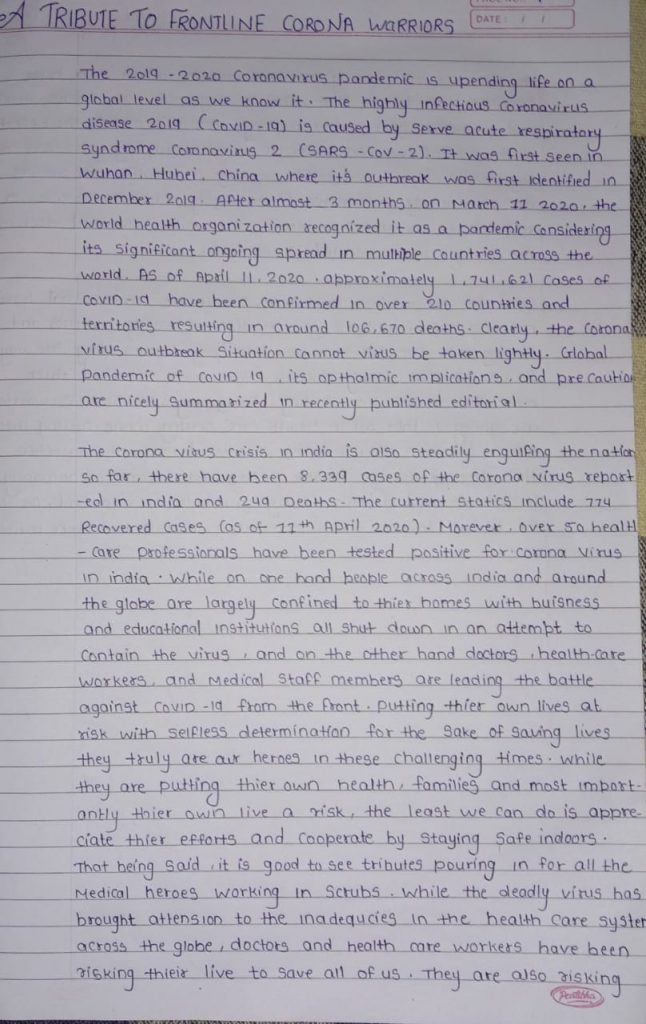 A TRIBUTE TO FRONTLINE CORONA WARRIORS
DATE: / /
The 2019-2020 Coronavirus pandemic is upending life on a
global level as we know it. The highly infectious Coronavirus
disease 2019 (COVID-19) is caused by serve acute respiratory
syndrome coronavirus 2 (SARS-CoV-2). It was first seen in
Wuhan, Hubei, China where it's outbreak was first identified in
December 2019. After almost 3 months, on March 11 2020, the
world health organization recognized it as a pandemic considering
its significant ongoing spread in multiple countries across the
world. As of April 11, 2020, approximately 1,741,621 cases of
COVID-19 have been confirmed in over 210 countries and
territories resulting in around 106,670 deaths. Clearly, the corona
virus outbreak situation cannot virus be taken lightly. Global
pandemic of COVID 19, its opthalmic implications, and pre cautio
are nicely summarized in recently published editorial.
The corona virus crisis in india is also steadily engulfing the nation
so far, there have been 8,339 cases of the corona virus report
-ed in india and 249 Deaths. The current statics include 774
Recovered cases (as of 11th April 2020). Morever, over 50 health
- care professionals have been tested positive for corona virus
in india. While on one hand people across India and around
the globe are largely confined to thier homes with buisness
and educational institutions all shut down in an attempt to
contain the virus, and on the other hand doctors, health-care
workers, and Medical staff members are leading the battle
against COVID-19 from the front. putting thier own lives at
risk with selfless determination for the sake of saving lives
they truly are our heroes in these challenging times. while
they are putting thier own health, families and most import-
antly thier own live a risk, the least we can do is appre-
ciate thier efforts and cooperate by staying safe indoors.
That being said, it is good to see tributes pouring in for all the
Medical heroes working in scrubs. while the deadly virus has
brought attension to the inadequcies in the health care system
across the globe, doctors and health care workers have been
risking thieir live to save all of us. They are also risking
Pratibha